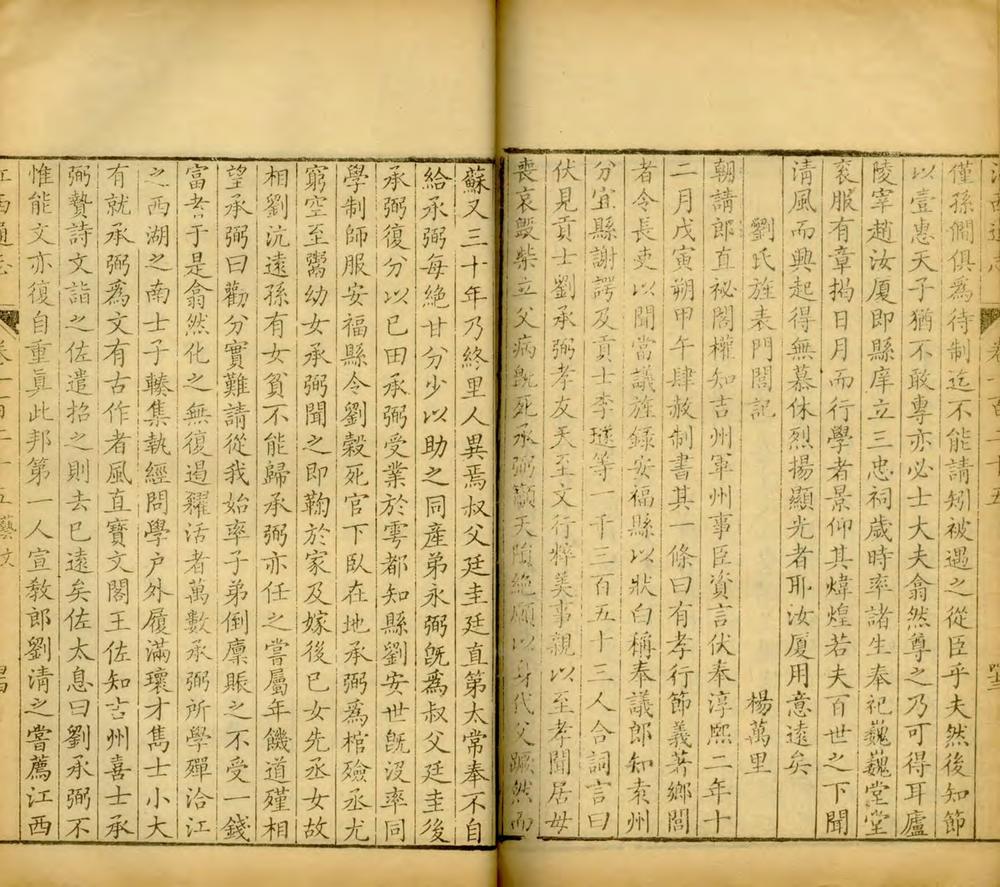 僅孫僩俱為待制迄不能請矧被遇之從臣乎夫然後知節
以壹惠天子猶不敢專亦必士大夫翕然尊之乃可得耳廬
陵宰趙汝厦即縣庠立三忠祠歲時率諸生奉祀巍巍堂堂
衮服有章揭日月而行學者景仰其煒煌若夫百世之下聞
清風而興起得無慕休烈揚顯光者耶汝厦用意遠矣
劉氏旌表門閭記 楊萬里
朝請郎直祕閣權知吉州軍州事臣資言伏奉淳熙二年十
二月戊寅朔甲午肆赦制書其一條曰有孝行節義著鄉閭
者令長吏以聞當議旌録安福縣以狀白稱奉議郎知袁州
分宜縣謝諤及貢士李璲等一千三百五十三人合詞言曰
伏見貢士劉承弼孝友天至文行粹美事親以至孝聞居母
喪哀毀柴立父病既死承弼籲天隕絶願以身代父蹶然而
蘇又三十年乃終里人異焉叔父廷圭廷直第太常奉不自
給承弼每絶甘分少以助之同產弟永弼既為叔父廷圭後
承弼復分以已田承弼受業於雩都知縣劉安世既沒率同
學制師服安福縣令劉縠死官下臥在地承弼為棺殮丞尤
窮空至鬻幼女承弼聞之即鞠於家及嫁後已女先丞女故
相劉沆遠孫有女貧不能歸承弼亦任之嘗屬年饑道殣相
望承弼曰勸分實難請從我始率子弟倒廪賑之不受一錢
富者于是翕然化之無復遏糴活者萬數承弼所學殫洽江
之西湖之南士子轃集執經問學户外履滿瓌才雋士小大
有就承弼為文有古作者風直寶文閣王佐知吉州喜士承
弼贄詩文詣之佐遣招之則去已遠矣佐太息曰劉承弼不
惟能文亦復自重真此邦第一人宣敎郎劉清之嘗薦江西
江西通志 卷一百二十五 藝文